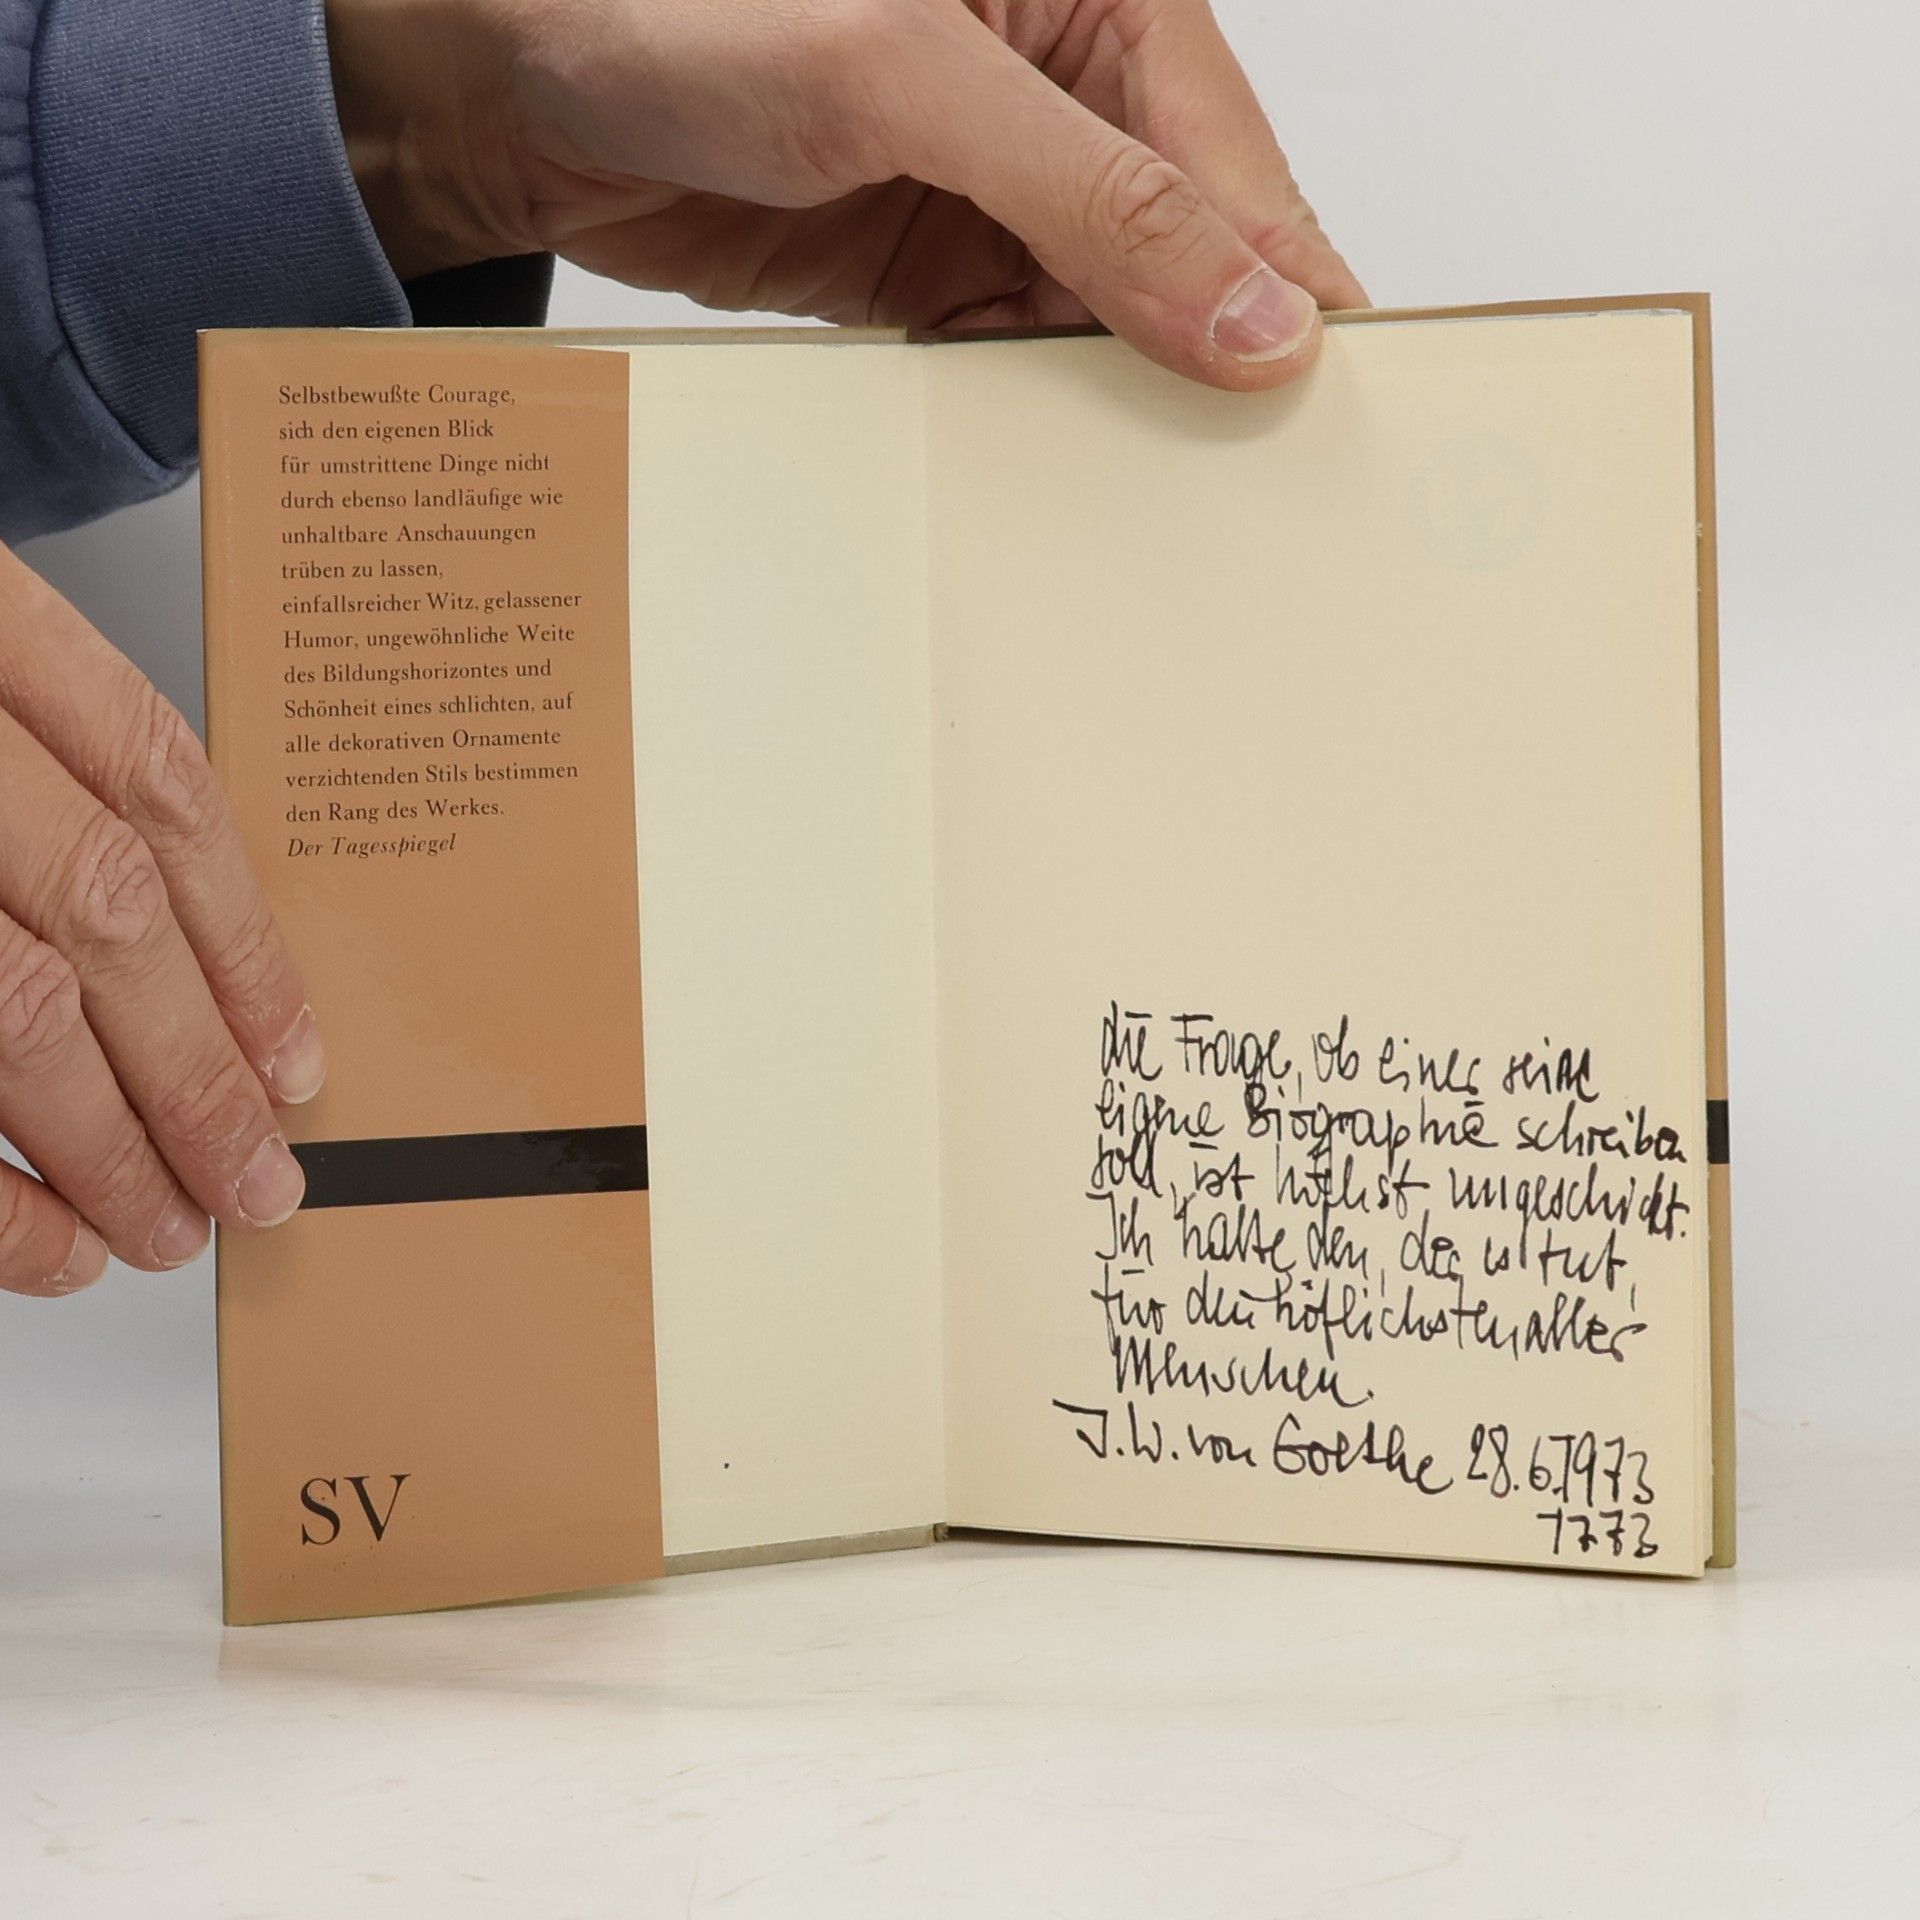 Selbstbewußte Courage,
sich den eigenen Blick
für umstrittene Dinge nicht
durch ebenso landläufige wie
unhaltbare Anschauungen
trüben zu lassen,
einfallsreicher Witz, gelassener
Humor, ungewöhnliche Weite
des Bildungshorizontes und
Schönheit eines schlichten, auf
alle dekorativen Ornamente
verzichtenden Stils bestimmen
den Rang des Werkes.
Der Tagesspiegel
SV
die Frage, ob einer seine
eigene Biographie schreiben
soll, ist höchst ungeschickt.
Ich halte den, der es tut,
für den höflichsten aller
Menschen.
J. W. von Goethe 28.6.1973
1773